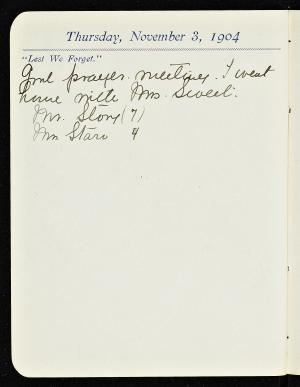 Thursday, November 3, 1904
"Lest We Forget."
prayer meeting. I went
home with Mrs. Sweet.
Mr. Story (7)
4